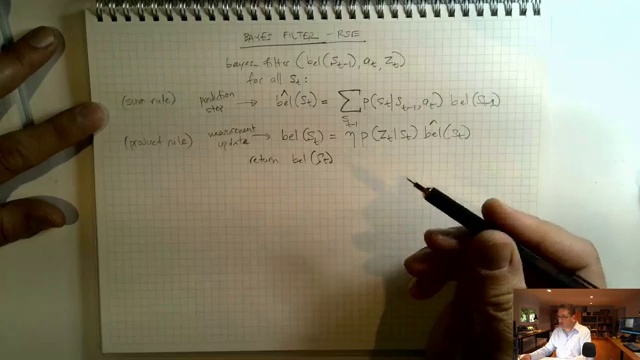 BAYES FILTER - RSE
bayes filter (bel(S_{t-1}), a_t, z_t)
for all S_t:
(sum rule) prediction step → b̂el(S_t) = ∑_{S_{t-1}} p(S_t|S_{t-1}, a_t) bel(S_{t-1})
(product rule) measurement update → bel(S_t) = η p(z_t|S_t) b̂el(S_t)
return bel(S_t)